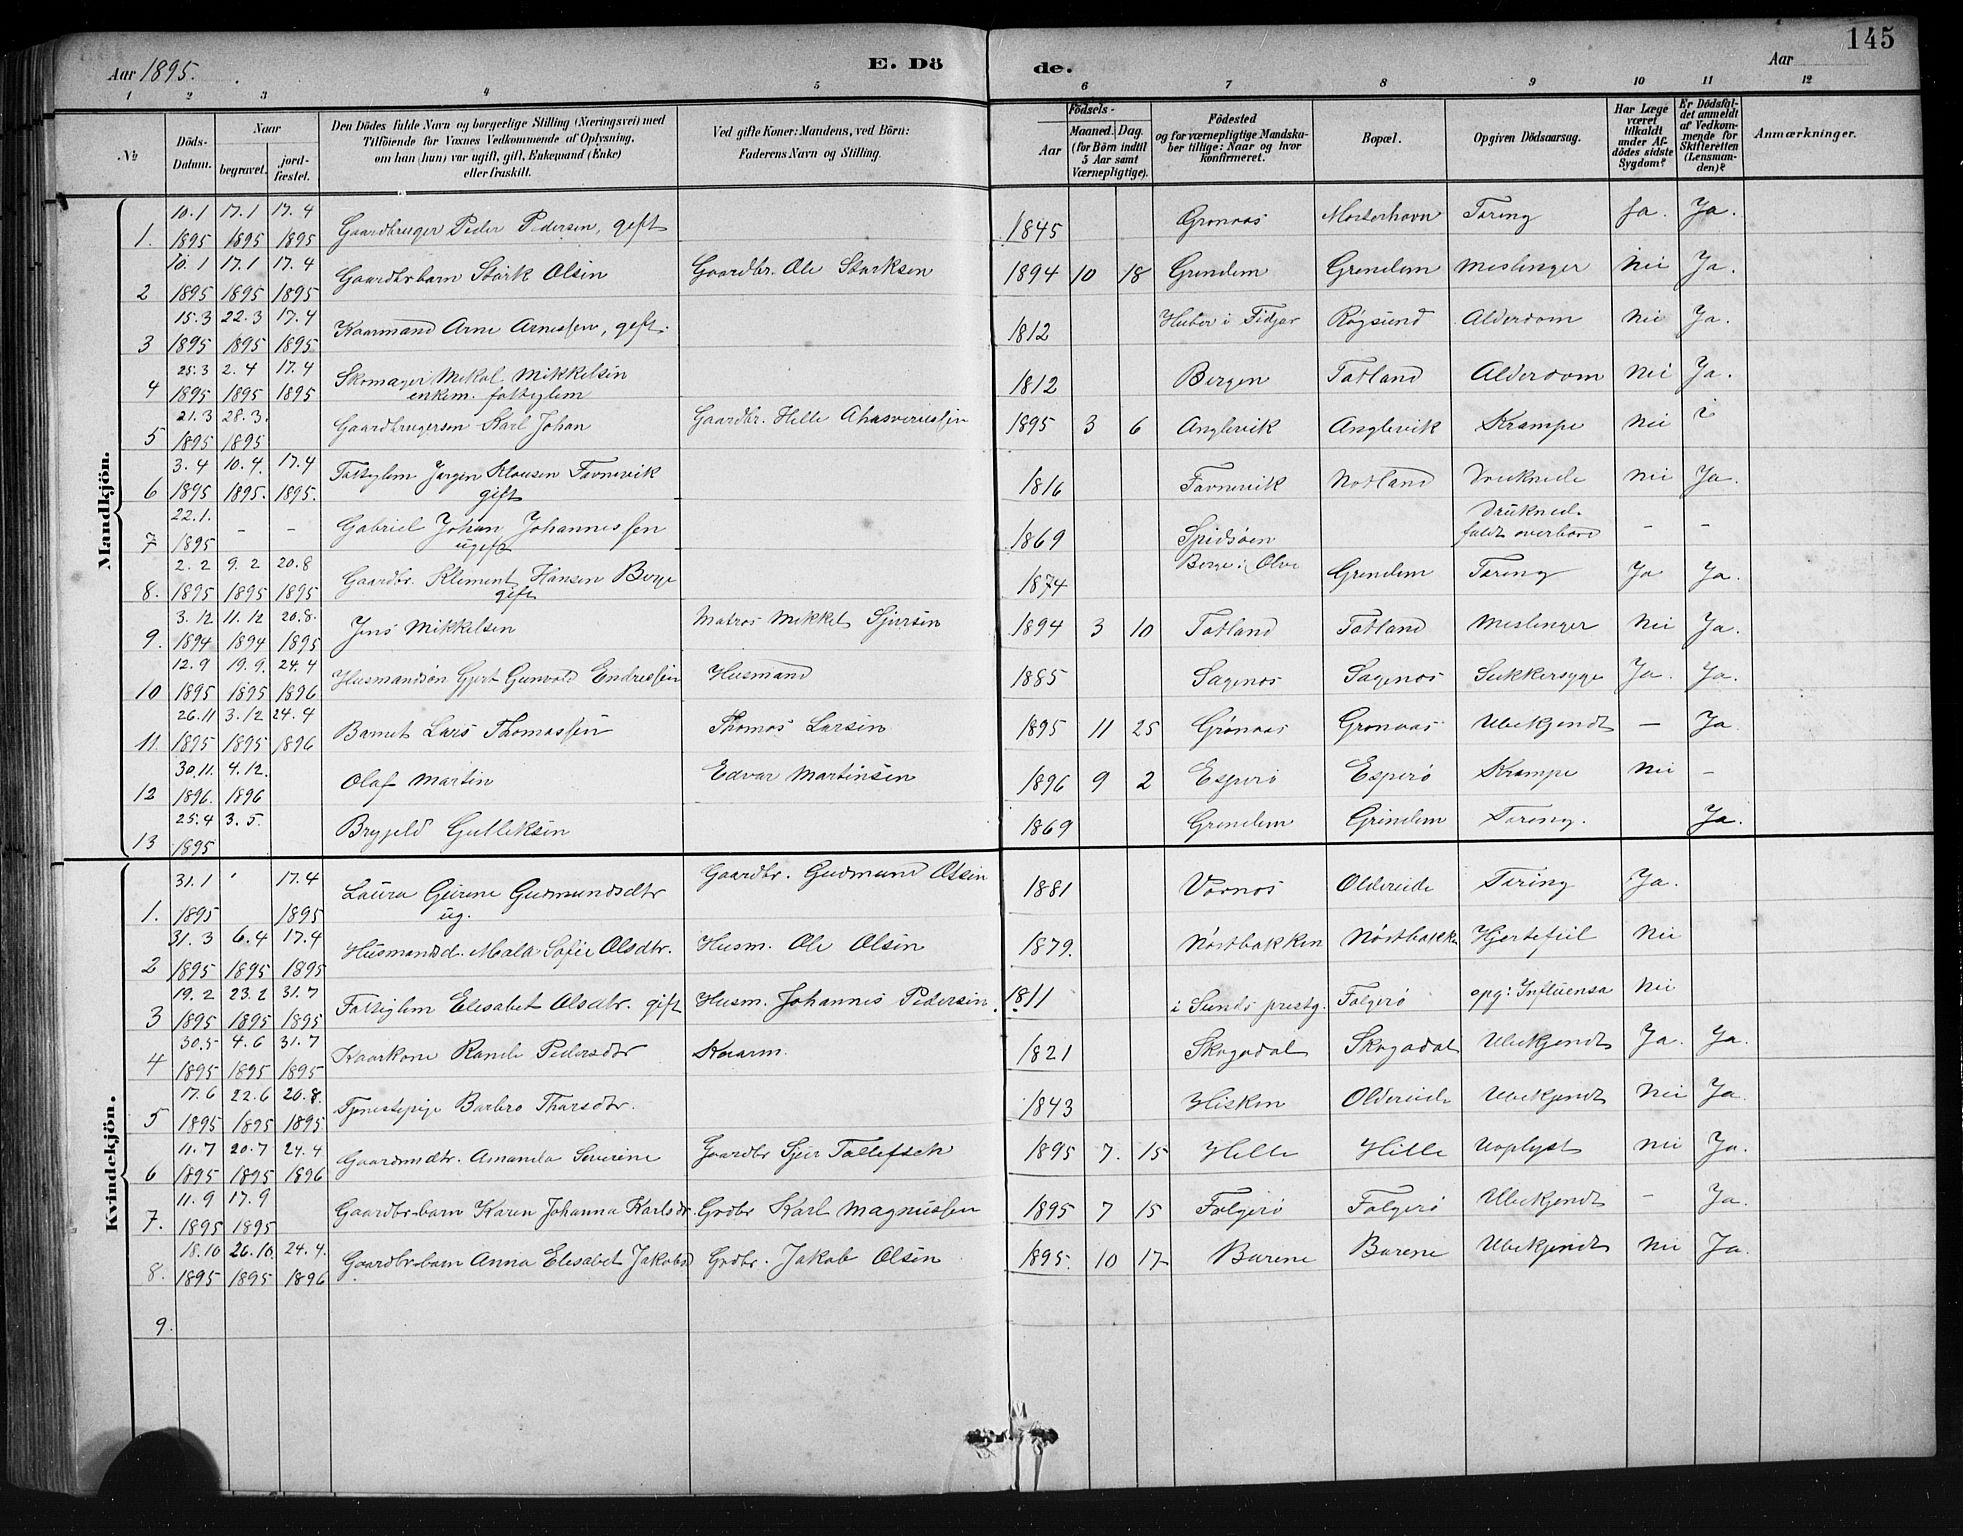 145
Aar 1895.
E. Dö
de.
Aar
1 2 3 4 5 6 7 8 9 10 11 12
No
Döds-Datum.
Naar
begravet.
jord-fæstet.
Den Dödes fulde Navn og borgerlige Stilling (Næringsvei) med
Tilföiende for Voxnes Vedkommende af Oplysning,
om han (hun) var ugift, gift, Enkemand (Enke)
eller fraskilt.
Ved gifte Koner: Mandens, ved Börn:
Faderens Navn og Stilling.
Födsels-
Aar
Maaned. Dag.
(for Börn indtil
5 Aar samt
Værnepligtige).
Födested
og for værnepligtige Mandska-
ber tillige: Naar og hvor
konfirmeret.
Bopæl.
Opgiven Dödsaarsag.
Har Læge
været
tilkaldt
under Af-
dödes sidste
Sygdom?
Er Dödsfal-
det anmeldt
af Vedkom-
mende for
Skifteretten
(Lensman-
den)?
Anmærkninger.
Mandkjön.
1. 10.1 1895 17.1 1895 17.4 1895 Gaardbruger Peder Pedersen, gift 1845 Gronaas Mosterhavn Tæring Ja. Ja.
2 10.1 1895 17.1 1895 17.4 1895 Gaardbr barn Størk Olsen Gaardbr. Ole Størksen 1894 10 18 Grindem Grindem Meslinger Nei Ja.
3 15.3 1895 22.3 1895 17.4 1895 Kaarmand Arne Arnessen, gift. 1812 i Fidjar Røgsund Alderdom Nei Ja.
4 25.3 1895 2.4 1895 17.4 1895 Skomager Mikal Mikkelsen
enkem. fattiglem 1812 Bergen Totland Alderdom Nei Ja.
5 21.3 1895 28.3. 1895 Gaardbrugersøn Karl Johan Gaardbr. Helle Ahasveriussen 1895 3 6 Anglevik Anglevik Krampe Nei
6 3.4 1895 10.4. 1895. 17.4 1895. Fattiglem Jørgen Klausen Favnevik
gift 1816 Favnevik Notland Druknede Nei Ja.
7 22.1. 1895 – – Gabriel Johan Johannessen
ugift 1869 Spidsøen Druknede
faldt overbord – –
8. 2.2 1895 9.2 1895 20.8 1895 Gaardbr. Kliment Hansen Berge
gift 1874 Berge i Ølve Grindem Tæring Ja Ja.
9. 3.12 1894 11.12 1894 20.8. 1895 Jens Mikkelsen Matros Mikkel Sjursen 1894 3 10 Totland Totland Meslinger Nei Ja.
10 12.9 1895 19.9. 1895 24.4 1896 Husmandsøn Gjert Gunvald Endressen Husmand 1885 Sagenos Sagenos Sukkersyge Ja. Ja.
11. 26.11 1895 3.12 1895 24.4 1896 Barnet Lars Thomassen Thomas Larsen 1895 11 25 Grønaas Gronaas Ubekjendt – Ja
12 30.11. 1896. 4.12. 1896 Olaf Martin Edvar Martinsen 1896 9 2 Esperø Esperø Krampe Nei –
13 25.4 1895 3.5. Brygjeld Gulleksen 1869 Grindem Grindem Tæring. Ja.
Kvindekjön.
1. 31.1 1895 17.4 1895 Laura Gurine Gudmundsdtr
ug. Gaardbr. Gudmund Olsen 1881 Vornos Oldereide Tæring Ja.
2 31.3 1895 6.4 1895 17.4 1895 Husmandsd. Mala Sofie Olsdtr. Husm. Ole Olsen 1879. Nøstbakken Nøstbakken Hjertefeil Nei
3 19.2 1895 23.2 1895 31.7 1895 Fattiglem Elisabet Olsdtr. gift Husm. Johannes Pedersen 1811 i Sunds prestg. Folgerø opg: Influensa Nei
4 30.5 1895 4.6 1895 31.7 1895 Kaarkone Randi Pedersdtr Kaarm. 1821 Skogadal Skogadal Ubekjendt Ja. Ja.
5 17.6 1895 22.6 1895 20.8. 1895 Tjenestepige Barbro Tharsdtr. 1843 Hisken Oldereide Ubekjendt Nei Ja.
6 11.7 1895 20.7 1895 24.4 1896 Gaardmdtr. Amanda Severine Gaardbr Sjur Tollefsen 1895 7. 15 Hille Hille Uoplyst Nei Ja.
7. 11.9 1895 17.9 1895 Gaardbr barn Karen Johanna Karlsdr. Grdbr Karl Magnussen 1895 7 15 Folgerø Folgerø Ubekjendt – Ja.
8. 18.10 1895 26.10. 1895 24.4. 1896 Gaardbr barn Anna Elisabet Jakobsd Grdbr. Jakob Olsen 1895. 10 17 Barene Barene Ubekjendt Nei Ja.
9.